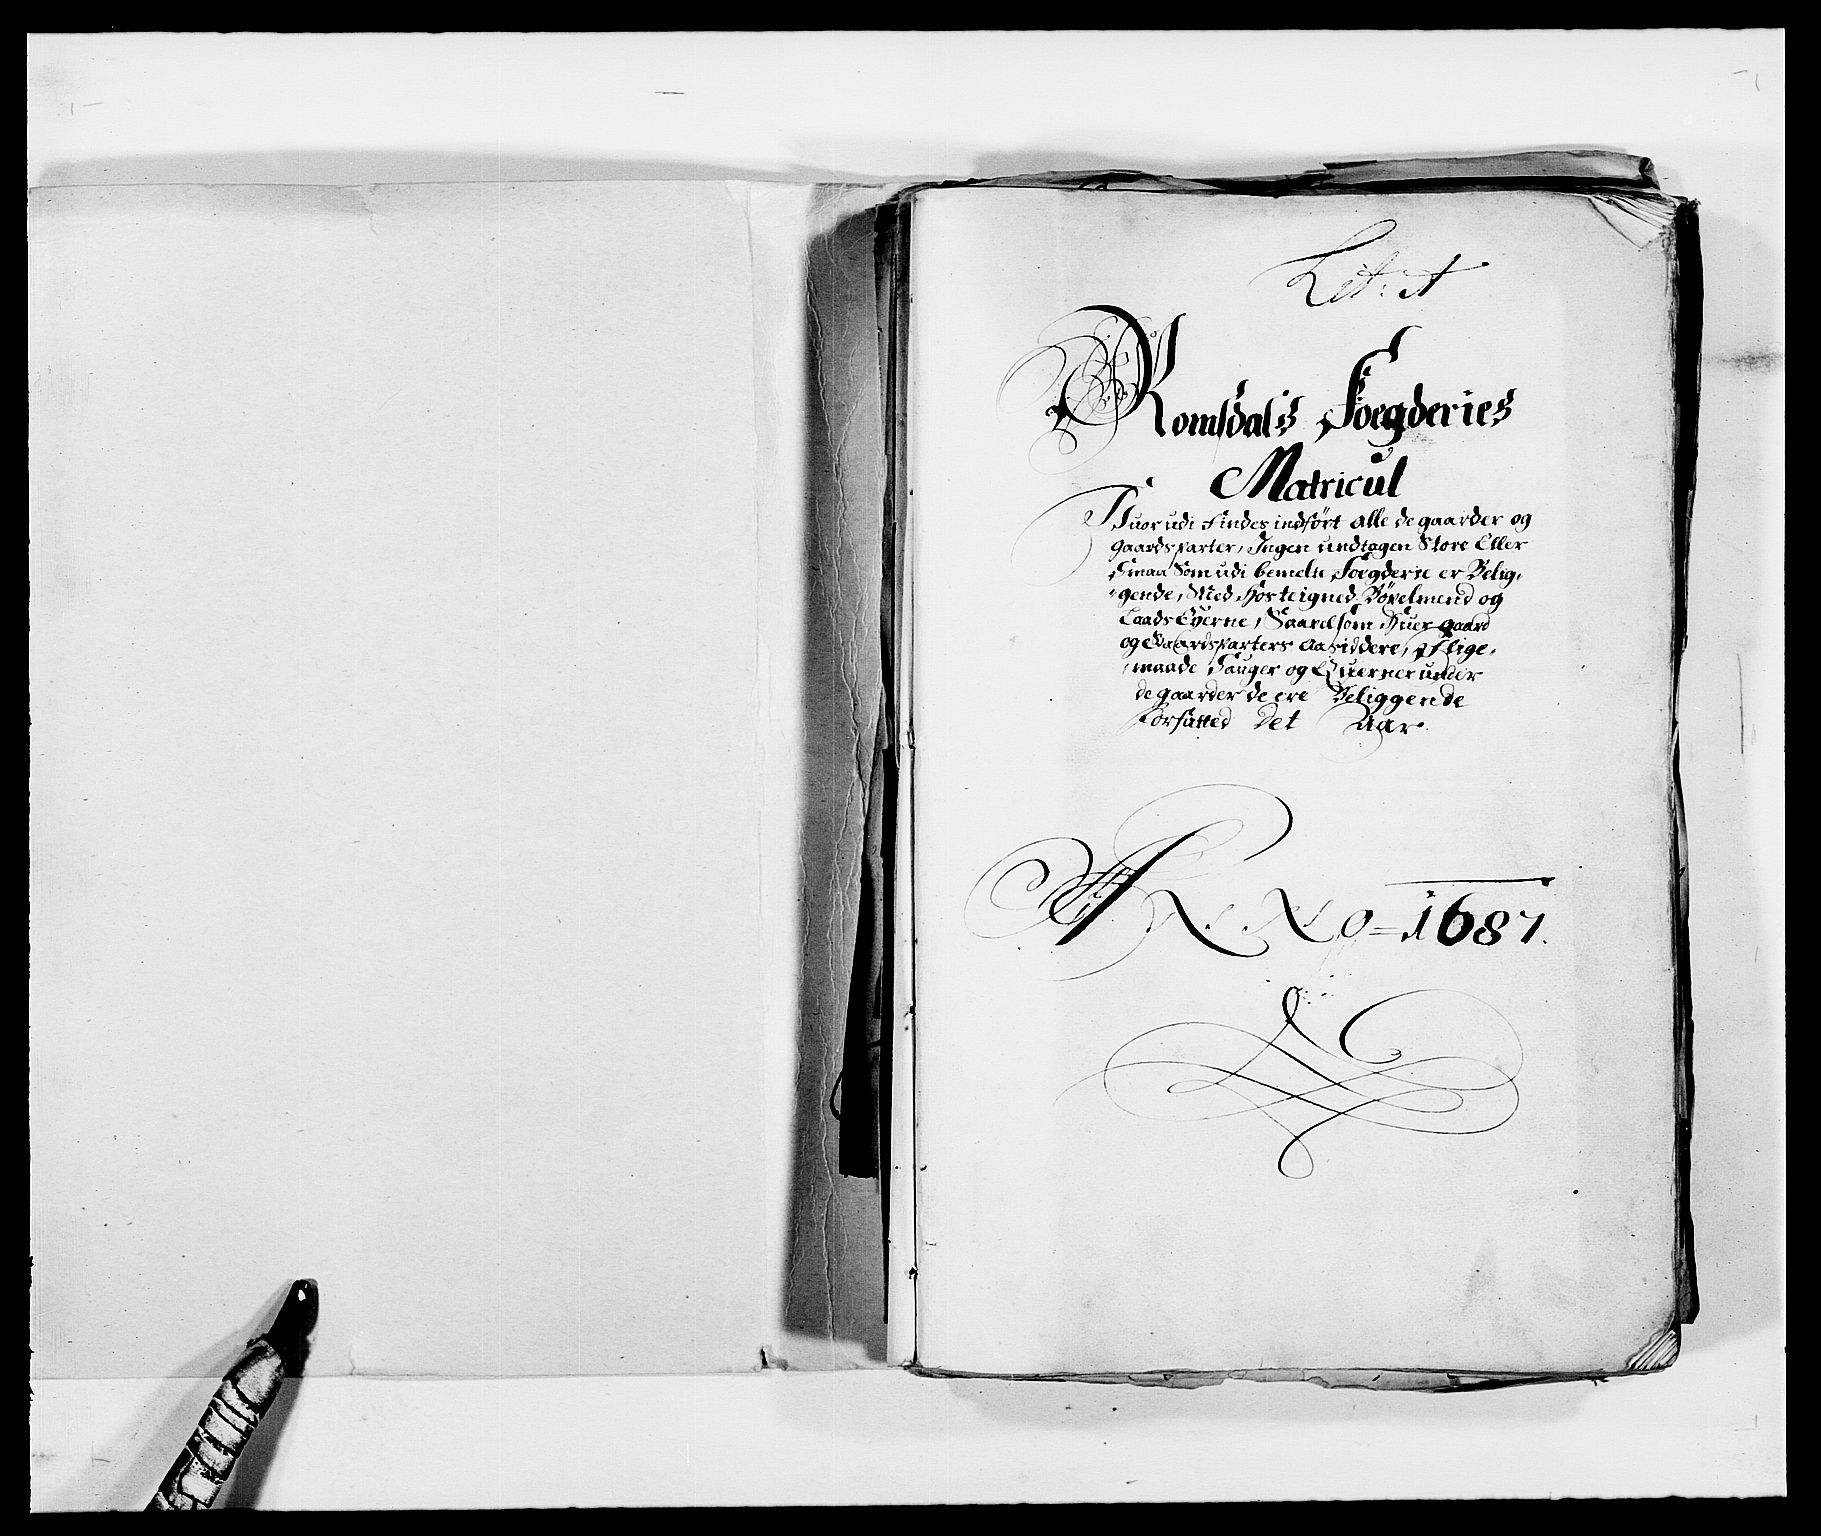 Lit: A
Romsdals Foegderies
Matricul
Huor udi Findes indført alle de gaarder og
gaardsparter, Ingen undtagen Store Eller
Smaa Som udi bemelte Foegderie er Belig-
-gende, Med Hosteigned Bøxelmend og
Laads Eyerne, Saavelsom Huer gaard
og Gaardsparters Aasiddere, Islige-
maade Sauger og Querner under
de gaarder de ere Beliggende
Forfatted Det Aar
ANNO = 1687.